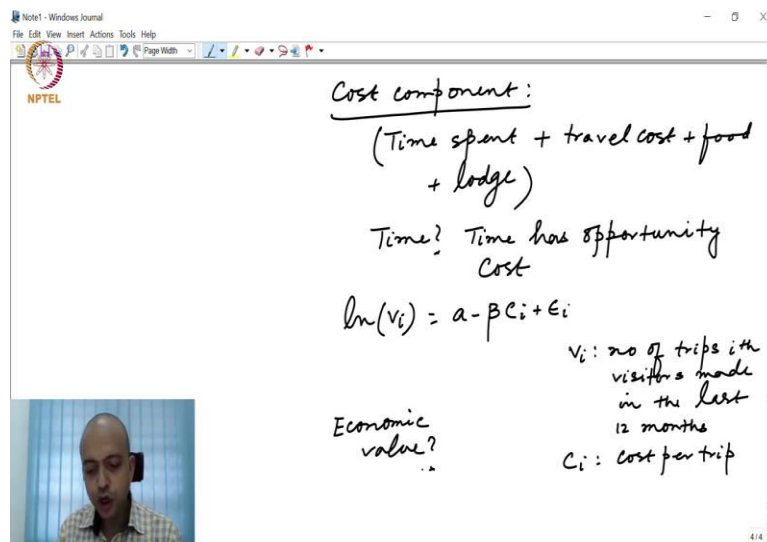 Note1 - Windows Journal
File Edit View Insert Actions Tools Help
Page Width
NPTEL
Cost component:
(Time spent + travel cost + food
+ lodge)
Time? Time has opportunity
Cost
ln(vi) = a - βCi + Ei
Vi: no of trips ith
visitors made
in the last
12 months
Economic
value?
Ci: cost per trip
4/4